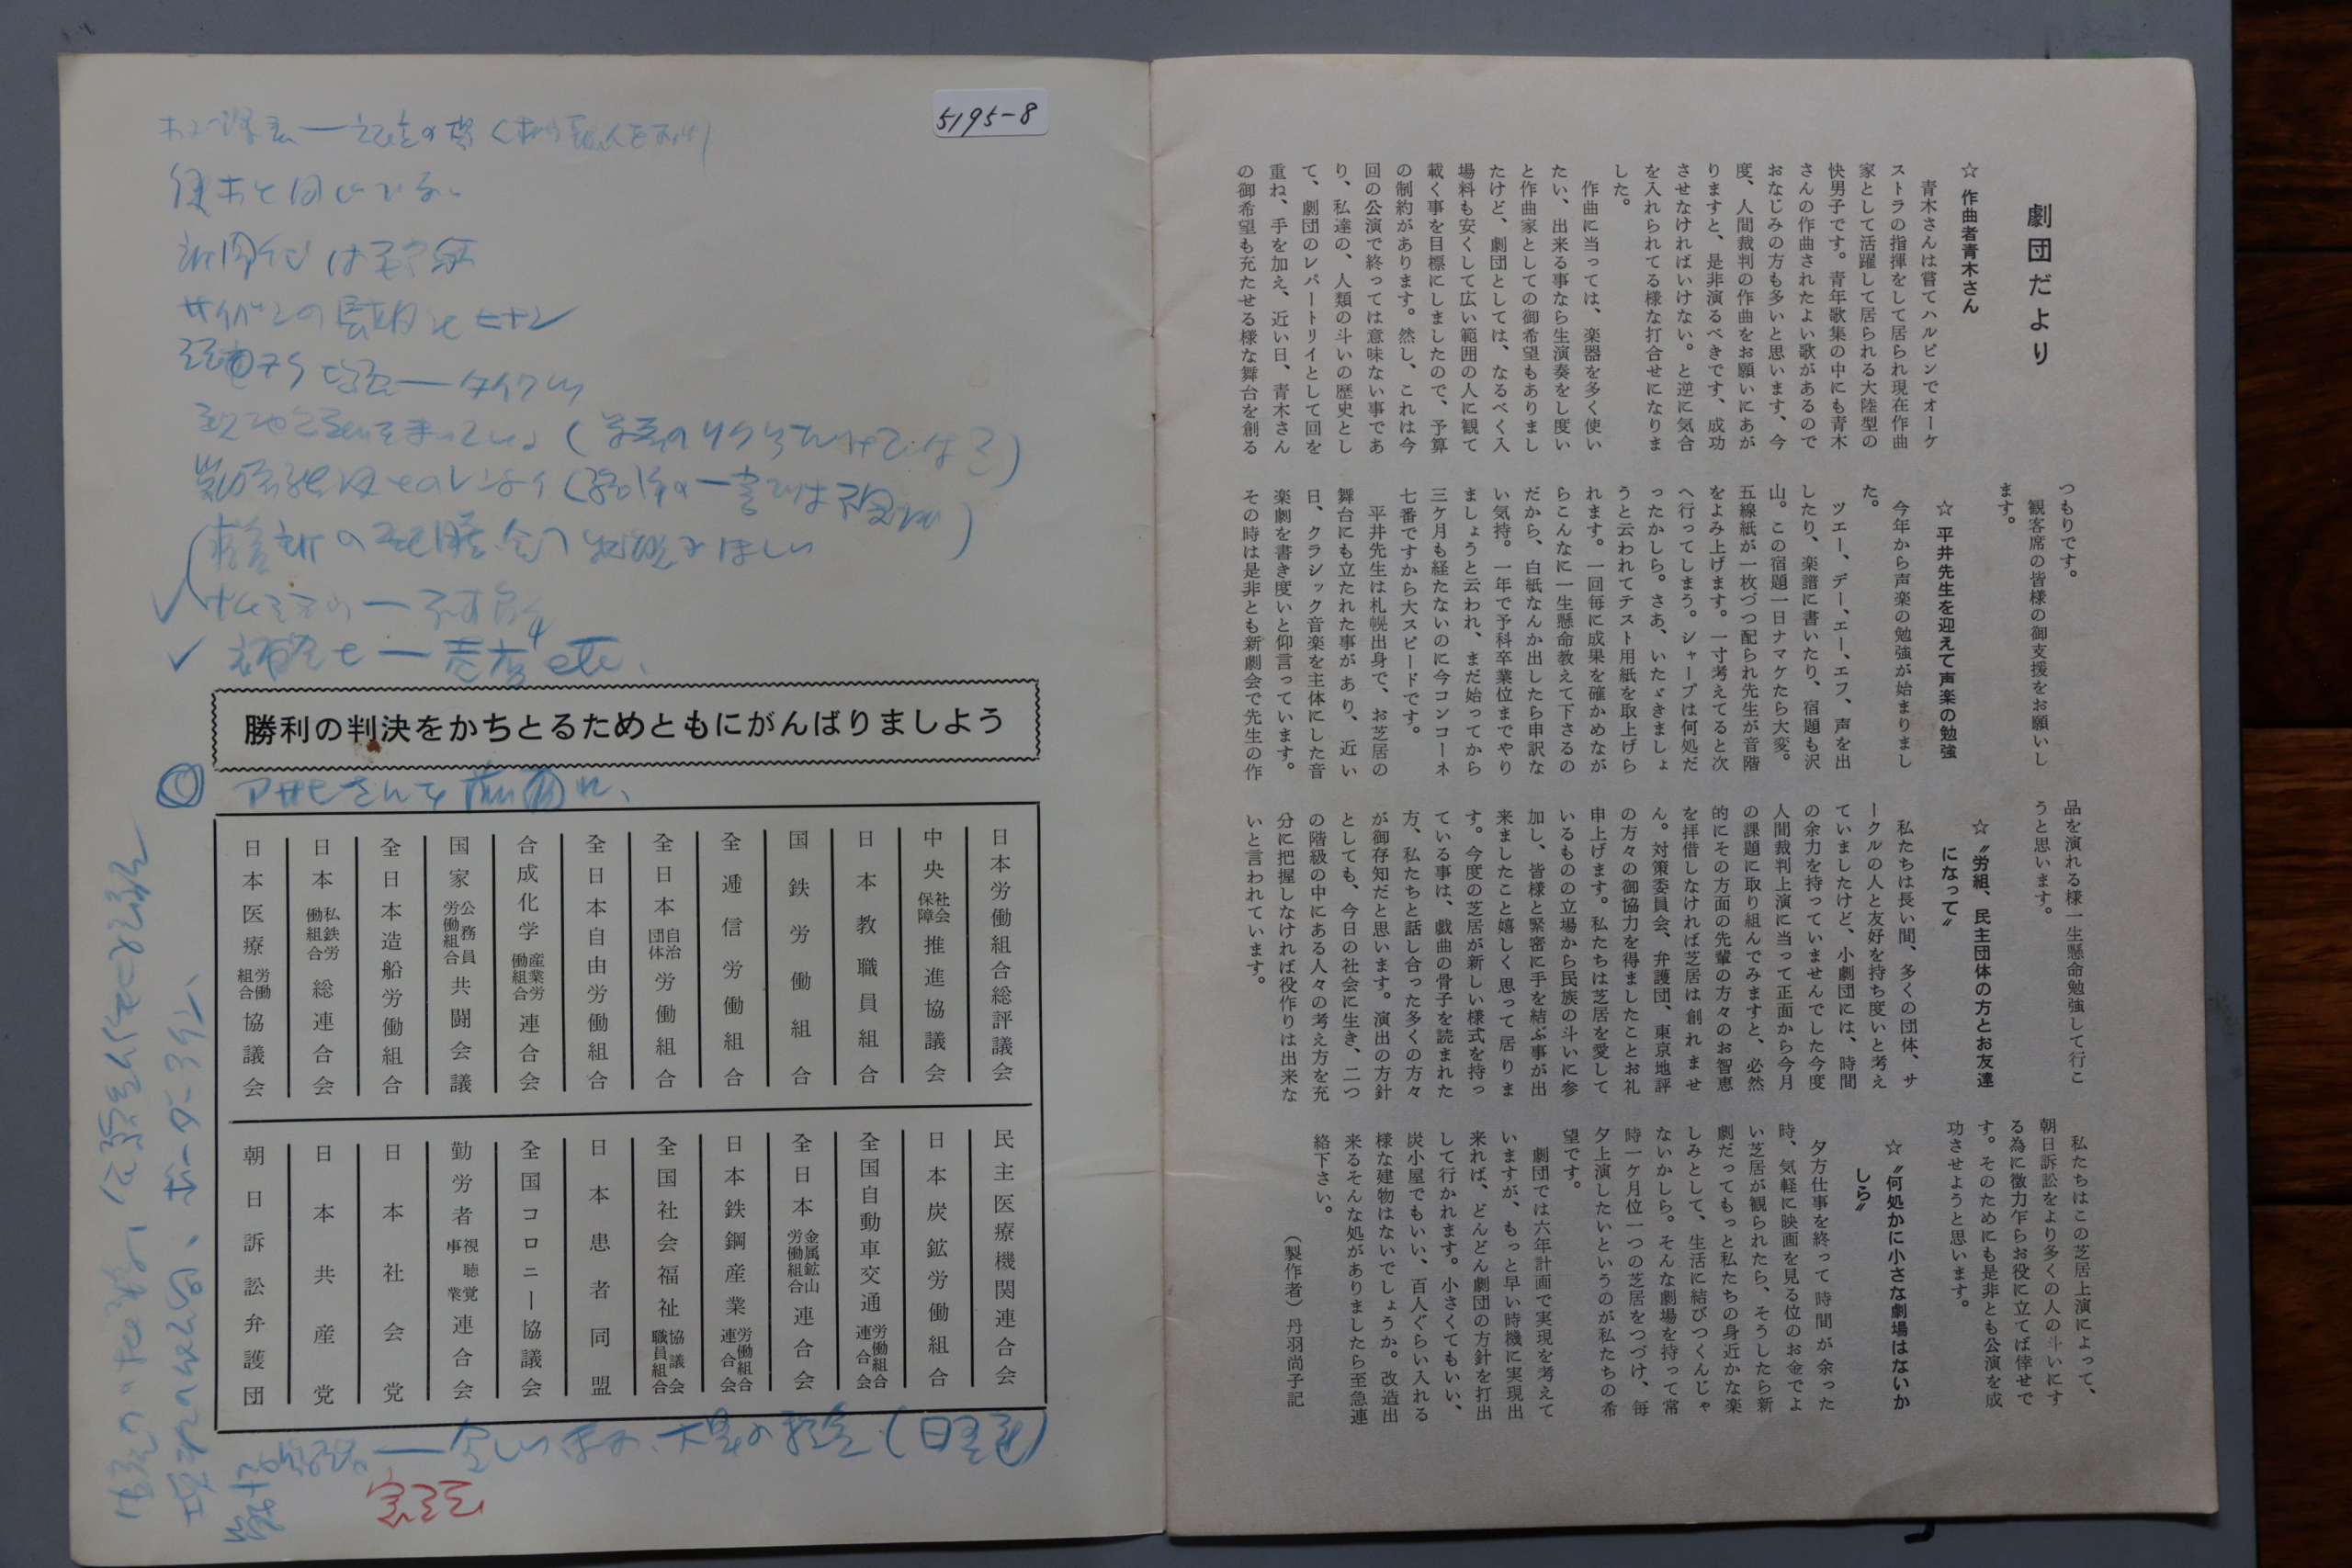 劇団だより
☆ 作曲者青木さん
青木さんは嘗てハルピンでオーケ
ストラの指揮をして居られ現在作曲
家として活躍して居られる大陸型の
快男子です。青年歌集の中にも青木
さんの作曲されたよい歌があるので
おなじみの方も多いと思います、今
度、人間裁判の作曲をお願いにあが
りますと、是非演るべきです、成功
させなければいけない。と逆に気合
を入れられてる様な打合せになりま
した。
作曲に当っては、楽器を多く使い
たい、出来る事なら生演奏をし度い
と作曲家としての御希望もありまし
たけど、劇団としては、なるべく入
場料も安くして広い範囲の人に観て
載く事を目標にしましたので、予算
の制約があります。然し、これは今
回の公演で終っては意味ない事であ
り、私達の、人類の斗いの歴史とし
て、劇団のレパートリイとして回を
重ね、手を加え、近い日、青木さん
の御希望も充たせる様な舞台を創る
つもりです。
観客席の皆様の御支援をお願いし
ます。
☆ 平井先生を迎えて声楽の勉強
今年から声楽の勉強が始まりまし
た。
ツエー、デー、エー、エフ、声を出
したり、楽譜に書いたり、宿題も沢
山。この宿題一日ナマケたら大変。
五線紙が一枚づつ配られ先生が音階
をよみ上げます。一寸考えてると次
へ行ってしまう。シャープは何処だ
ったかしら。さあ、いたゞきましょ
うと云われてテスト用紙を取上げら
れます。一回毎に成果を確かめなが
らこんなに一生懸命教えて下さるの
だから、白紙なんか出したら申訳な
い気持。一年で予科卒業位までやり
ましょうと云われ、まだ始ってから
三ヶ月も経たないのに今コンコーネ
七番ですから大スピードです。
平井先生は札幌出身で、お芝居の
舞台にも立たれた事があり、近い
日、クラシック音楽を主体にした音
楽劇を書き度いと仰言っています。
その時は是非とも新劇会で先生の作
品を演れる様一生懸命勉強して行こ
うと思います。
☆〝労組、民主団体の方とお友達
になって〟
私たちは長い間、多くの団体、サ
ークルの人と友好を持ち度いと考え
ていましたけど、小劇団には、時間
の余力を持っていませんでした今度
人間裁判上演に当って正面から今月
の課題に取り組んでみますと、必然
的にその方面の先輩の方々のお智恵
を拝借しなければ芝居は創れませ
ん。対策委員会、弁護団、東京地評
の方々の御協力を得ましたことお礼
申上げます。私たちは芝居を愛して
いるものの立場から民族の斗いに参
加し、皆様と緊密に手を結ぶ事が出
来ましたこと嬉しく思って居りま
す。今度の芝居が新しい様式を持っ
ている事は、戯曲の骨子を読まれた
方、私たちと話し合った多くの方々
が御存知だと思います。演出の方針
としても、今日の社会に生き、二つ
の階級の中にある人々の考え方を充
分に把握しなければ役作りは出来な
いと言われています。
私たちはこの芝居上演によって、
朝日訴訟をより多くの人の斗いにす
る為に微力乍らお役に立てば倖せで
す。そのためにも是非とも公演を成
功させようと思います。
☆〝何処かに小さな劇場はないか
しら〟
夕方仕事を終って時間が余った
時、気軽に映画を見る位のお金でよ
い芝居が観られたら、そうしたら新
劇だってもっと私たちの身近かな楽
しみとして、生活に結びつくんじゃ
ないかしら。そんな劇場を持って常
時一ヶ月位一つの芝居をつづけ、毎
夕上演したいというのが私たちの希
望です。
劇団では六年計画で実現を考えて
いますが、もっと早い時機に実現出
来れば、どんどん劇団の方針を打出
して行かれます。小さくてもいい、
炭小屋でもいい、百人ぐらい入れる
様な建物はないでしょうか。改造出
来るそんな処がありましたら至急連
絡下さい。
(製作者)丹羽尚子記
5195-8
勝利の判決をかちとるためともにがんばりましよう
日本労働組合総評議会
中央社会保障推進協議会
日本教職員組合
国鉄労働組合
全逓信労働組合
全日本自治団体労働組合
全日本自由労働組合
合成化学産業労働組合連合会
国家公務員労働組合共闘会議
全日本造船労働組合
日本私鉄労働組合総連合会
日本医療労働組合協議会
民主医療機関連合会
日本炭鉱労働組合
全国自動車交通労働組合連合会
全日本金属鉱山労働組合連合会
日本鉄鋼産業労働組合連合会
全国社会福祉協議会職員組合
日本患者同盟
全国コロニー協議会
勤労者視聴覚事業連合会
日本社会党
日本共産党
朝日訴訟弁護団